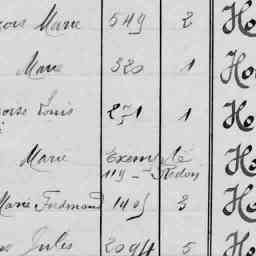 Marie 549 2 Ho
Marie 320 1 Ho
Louis 271 1 Ho
Marie Exempté Ho
119 - Redon
Marie Ferdinand 1405 3 Ho
Jules 2094 5 Ho